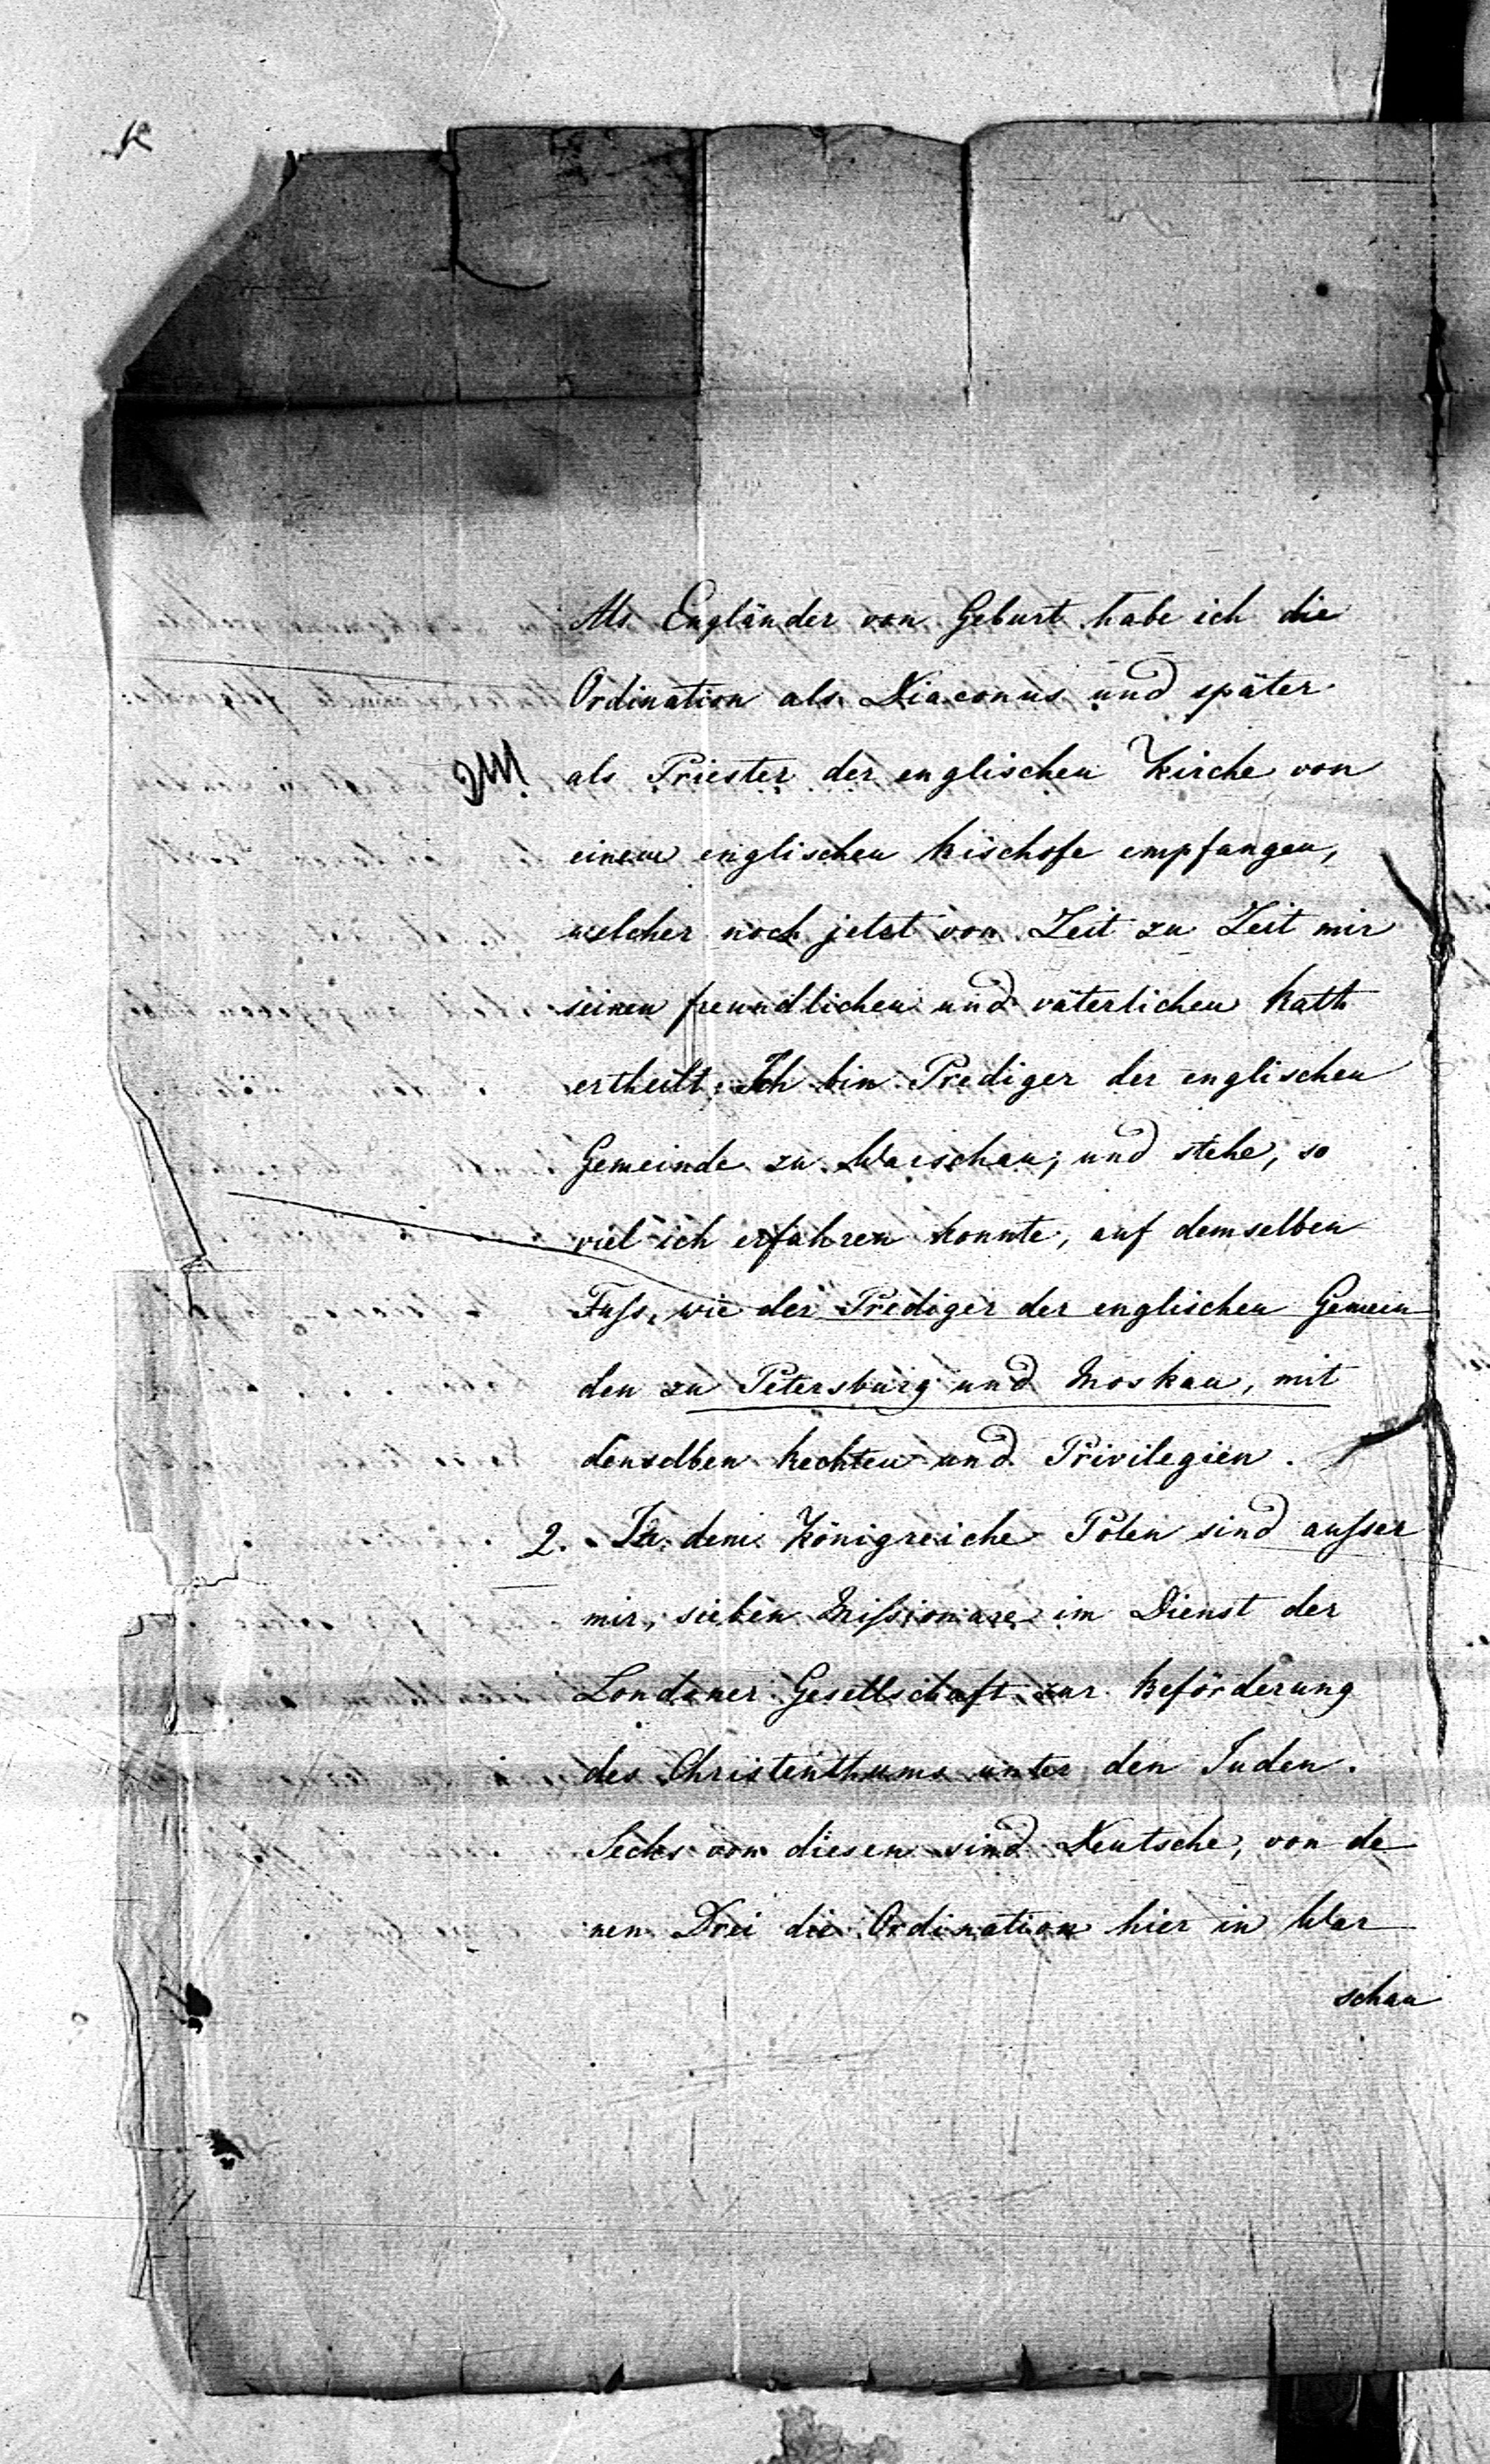 Als Engländer von Geburt habe ich die
Ordination als Diaconus und später
als Priester der englischen Kirche von
einem englischen Bischofe empfangen,
welcher noch jetzt von Zeit zu Zeit mir
seinen freundlichen und väterlichen Rath
ertheilt. Ich bin Prediger der englischen
Gemeinde zu Warschau; und stehe, so
viel ich erfahren konnte, auf demselben
Fuſs, wie der Prediger der englischen Gemein
den zu Petersburg und Moskau, mit
denselben Rechten und Privilegien.
2. In dem Königreiche Polen sind auſser
mir, sieben Miſsionare im Dienst der
Londoner Gesellschaft zur Beförderung
des Christenthums unter den Juden.
Sechs von diesen sind Deutsche, von de
nen Drei die Ordination hier in War
schau